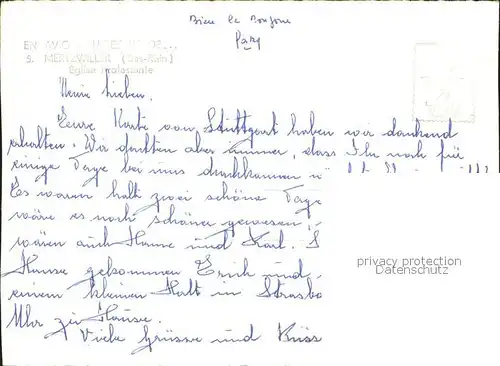 Bien le Bonjour
Papy
EN AVION AU-DESSUS DE...
9. MERTZWILLER (Bas-Rhin)
Eglise Protestante
Meine Lieben.
Eure Karte von Stuttgart haben wir dankend
erhalten. Wir dachten aber immer, dass Ihr noch für
einige Tage bei uns
Es waren halt zwei schöne Tage
wäre es noch schöner gewesen,
wären auch Hanne und Karl.
gekommen Erich und
einem kleinen Halt in Strasbo
Uhr zu Hause.
Viele Grüsse und Küss
privacy protection
Datenschutz